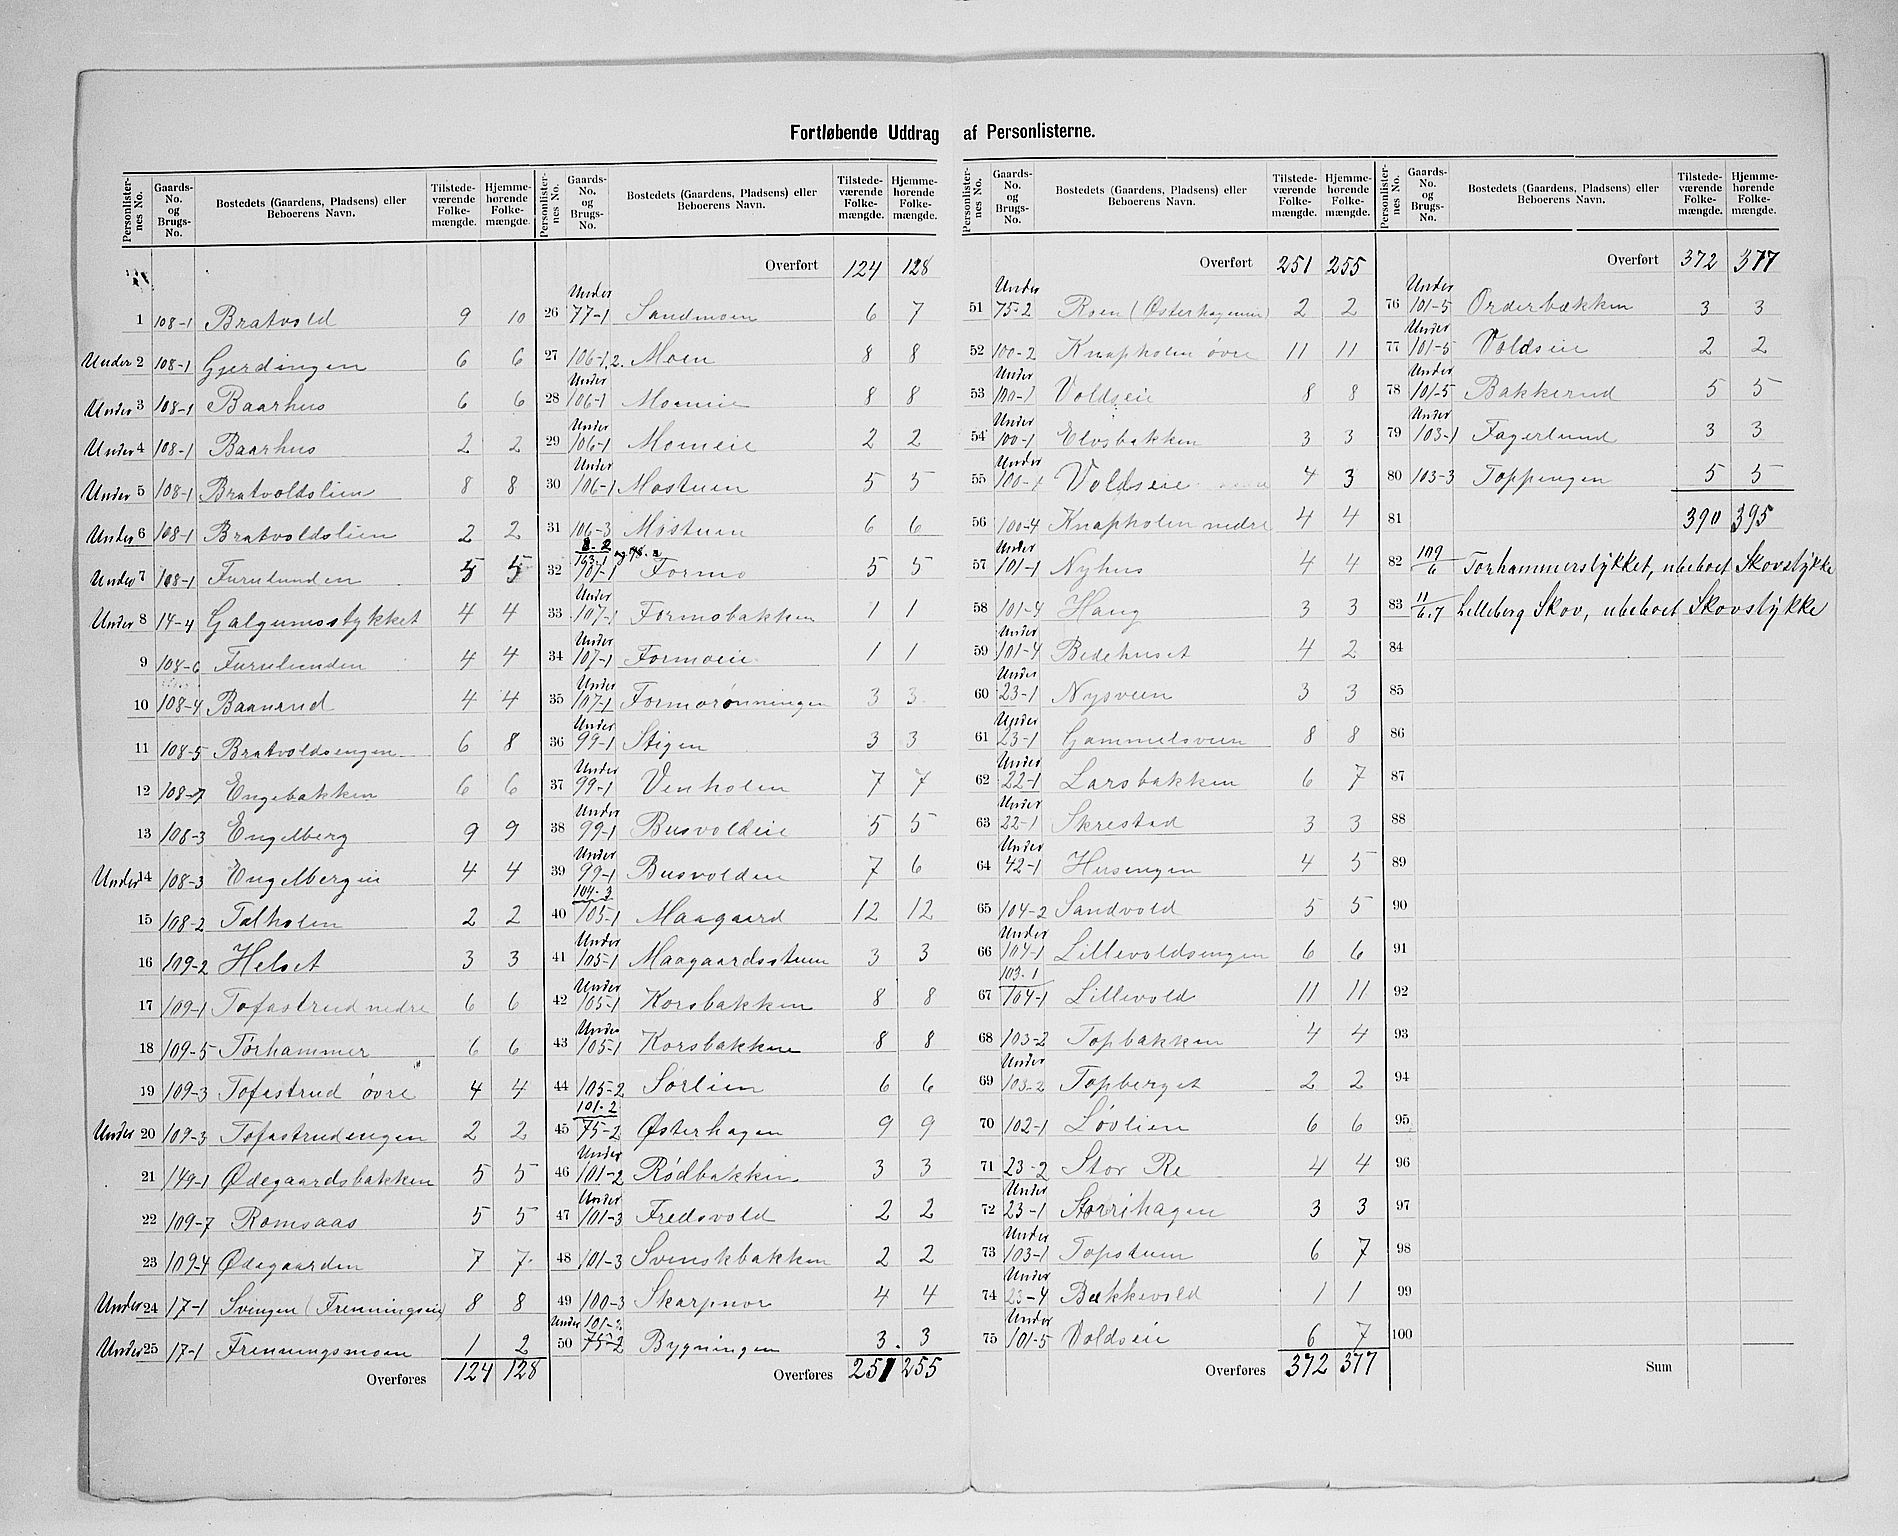 Fortløbende Uddrag af Personlisterne.
Personlister-nes No. Gaards-No. og Brugs-No. Bostedets (Gaardens, Pladsens) eller Beboerens Navn. Tilstede-værende Folke-mængde. Hjemme-hørende Folke-mængde.
1 108-1 Bratvold 9 10
Under 2 108-1 Gjerdingen 6 6
Under 3 108-1 Baarhus 6 6
Under 4 108-1 Baarhus 2 2
Under 5 108-1 Bratvoldslien 8 8
Under 6 108-1 Bratvoldslien 2 2
Under 7 108-1 Furulunden 5 5
Under 8 14-4 Galgumsstykket 4 4
9 108-6 Furulunden 4 4
10 108-4 Baanrud 4 4
11 108-5 Bratvoldsengen 6 8
12 108-7 Engebakken 6 6
13 108-3 Engelberg 9 9
Under 14 108-3 Engelbergeie 4 4
15 108-2 Talholen 2 2
16 109-2 Helset 3 3
17 109-1 Tofastrud nedre 6 6
18 109-5 Torhammer 6 6
19 109-3 Tofastrud øvre 4 4
Under 20 109-3 Tofastrudengen 2 2
21 149-1 Ødegaardsbakken 5 5
22 109-7 Romsaas 5 5
23 109-4 Ødegaarden 7 7
Under 24 17-1 Svingen (Frenningseie) 8 8
Under 25 17-1 Frenningsmoen 1 2
Overføres 124 128
Personlister-nes No. Gaards-No. og Brugs-No. Bostedets (Gaardens, Pladsens) eller Beboerens Navn. Tilstede-værende Folke-mængde. Hjemme-hørende Folke-mængde.
Overført 124 128
26 Under 77-1 Sandmoen 6 7
27 106-1,2. Moen 8 8
28 Under 106-1 Momeie 8 8
29 Under 106-1 Momeie 2 2
30 Under 106-1 Mostuen 5 5
31 106-3 Mostuen 6 6
32 107-1 Formo 5 5
33 Under 107-1 Formobakken 1 1
34 Under 107-1 Formoeie 1 1
35 Under 107-1 Formorønningen 3 3
36 Under 99-1 Stigen 3 3
37 Under 99-1 Venholen 7 7
38 Under 99-1 Busvoldeie 5 5
39 Under 99-1 Busvolden 7 6
40 104-3 105-1 Maagaard 12 12
41 Under 105-1 Maagaardsstuen 3 3
42 Under 105-1 Korsbakken 8 8
43 Under 105-1 Korsbakken 8 8
44 105-2 Sørlien 6 6
45 101-2 75-2 Østerhagen 9 9
46 Under 101-2 Rødbakken 3 3
47 Under 101-3 Fredsvold 2 2
48 101-3 Svenskbakken 2 2
49 100-3 Skarpnor 4 4
50 Under 101-2 75-2 Bygningen 3 3
Overføres 251 255
Personlister-nes No. Gaards-No. og Brugs-No. Bostedets (Gaardens, Pladsens) eller Beboerens Navn. Tilstede-værende Folke-mængde. Hjemme-hørende Folke-mængde.
Overført 251 255
51 Under 75-2 Roen (Østerhageneie) 2 2
52 100-2 Knapholen øvre 11 11
53 Under 100-1 Voldseie 8 8
54 Under 100-1 Elvsbakken 3 3
55 Under 100-1 Voldseie 4 3
56 100-4 Knapholen nedre 4 4
57 Under 101-1 Nyhus 4 4
58 101-4 Haug 3 3
59 Under 101-4 Bedehuset 4 2
60 Under 23-1 Nysveen 3 3
61 Under 23-1 Gammelsveen 8 8
62 Under 22-1 Larsbakken 6 7
63 Under 22-1 Skrestad 3 3
64 Under 42-1 Husengen 4 5
65 104-2 Sandvold 5 5
66 Under 104-1 Lillevoldsengen 6 6
67 103-1 104-1 Lillevold 11 11
68 103-2 Topbakken 4 4
69 Under 103-2 Topberget 2 2
70 102-1 Løvlien 6 6
71 23-2 Stor Re 4 4
72 Under 23-1 Storrihagen 3 3
73 Under 103-1 Topstuen 6 7
74 Under 23-4 Bækkevold 1 1
75 Under 101-5 Voldseie 6 7
Overføres 372 377
Personlister-nes No. Gaards-No. og Brugs-No. Bostedets (Gaardens, Pladsens) eller Beboerens Navn. Tilstede-værende Folke-mængde. Hjemme-hørende Folke-mængde.
Overført 372 377
76 Under 101-5 Orderbækken 3 3
77 Under 101-5 Voldseie 2 2
78 Under 101-5 Bakkerud 5 5
79 Under 103-1 Fagerlund 3 3
80 103-3 Toppengen 5 5
81 390 395
82 109/6 Torhammerstykket, ubeboet Skovstykke
83 11/6.7 Lilleberg Skov, ubeboet Skovstykke
84
85
86
87
88
89
90
91
92
93
94
95
96
97
98
99
100
Sum